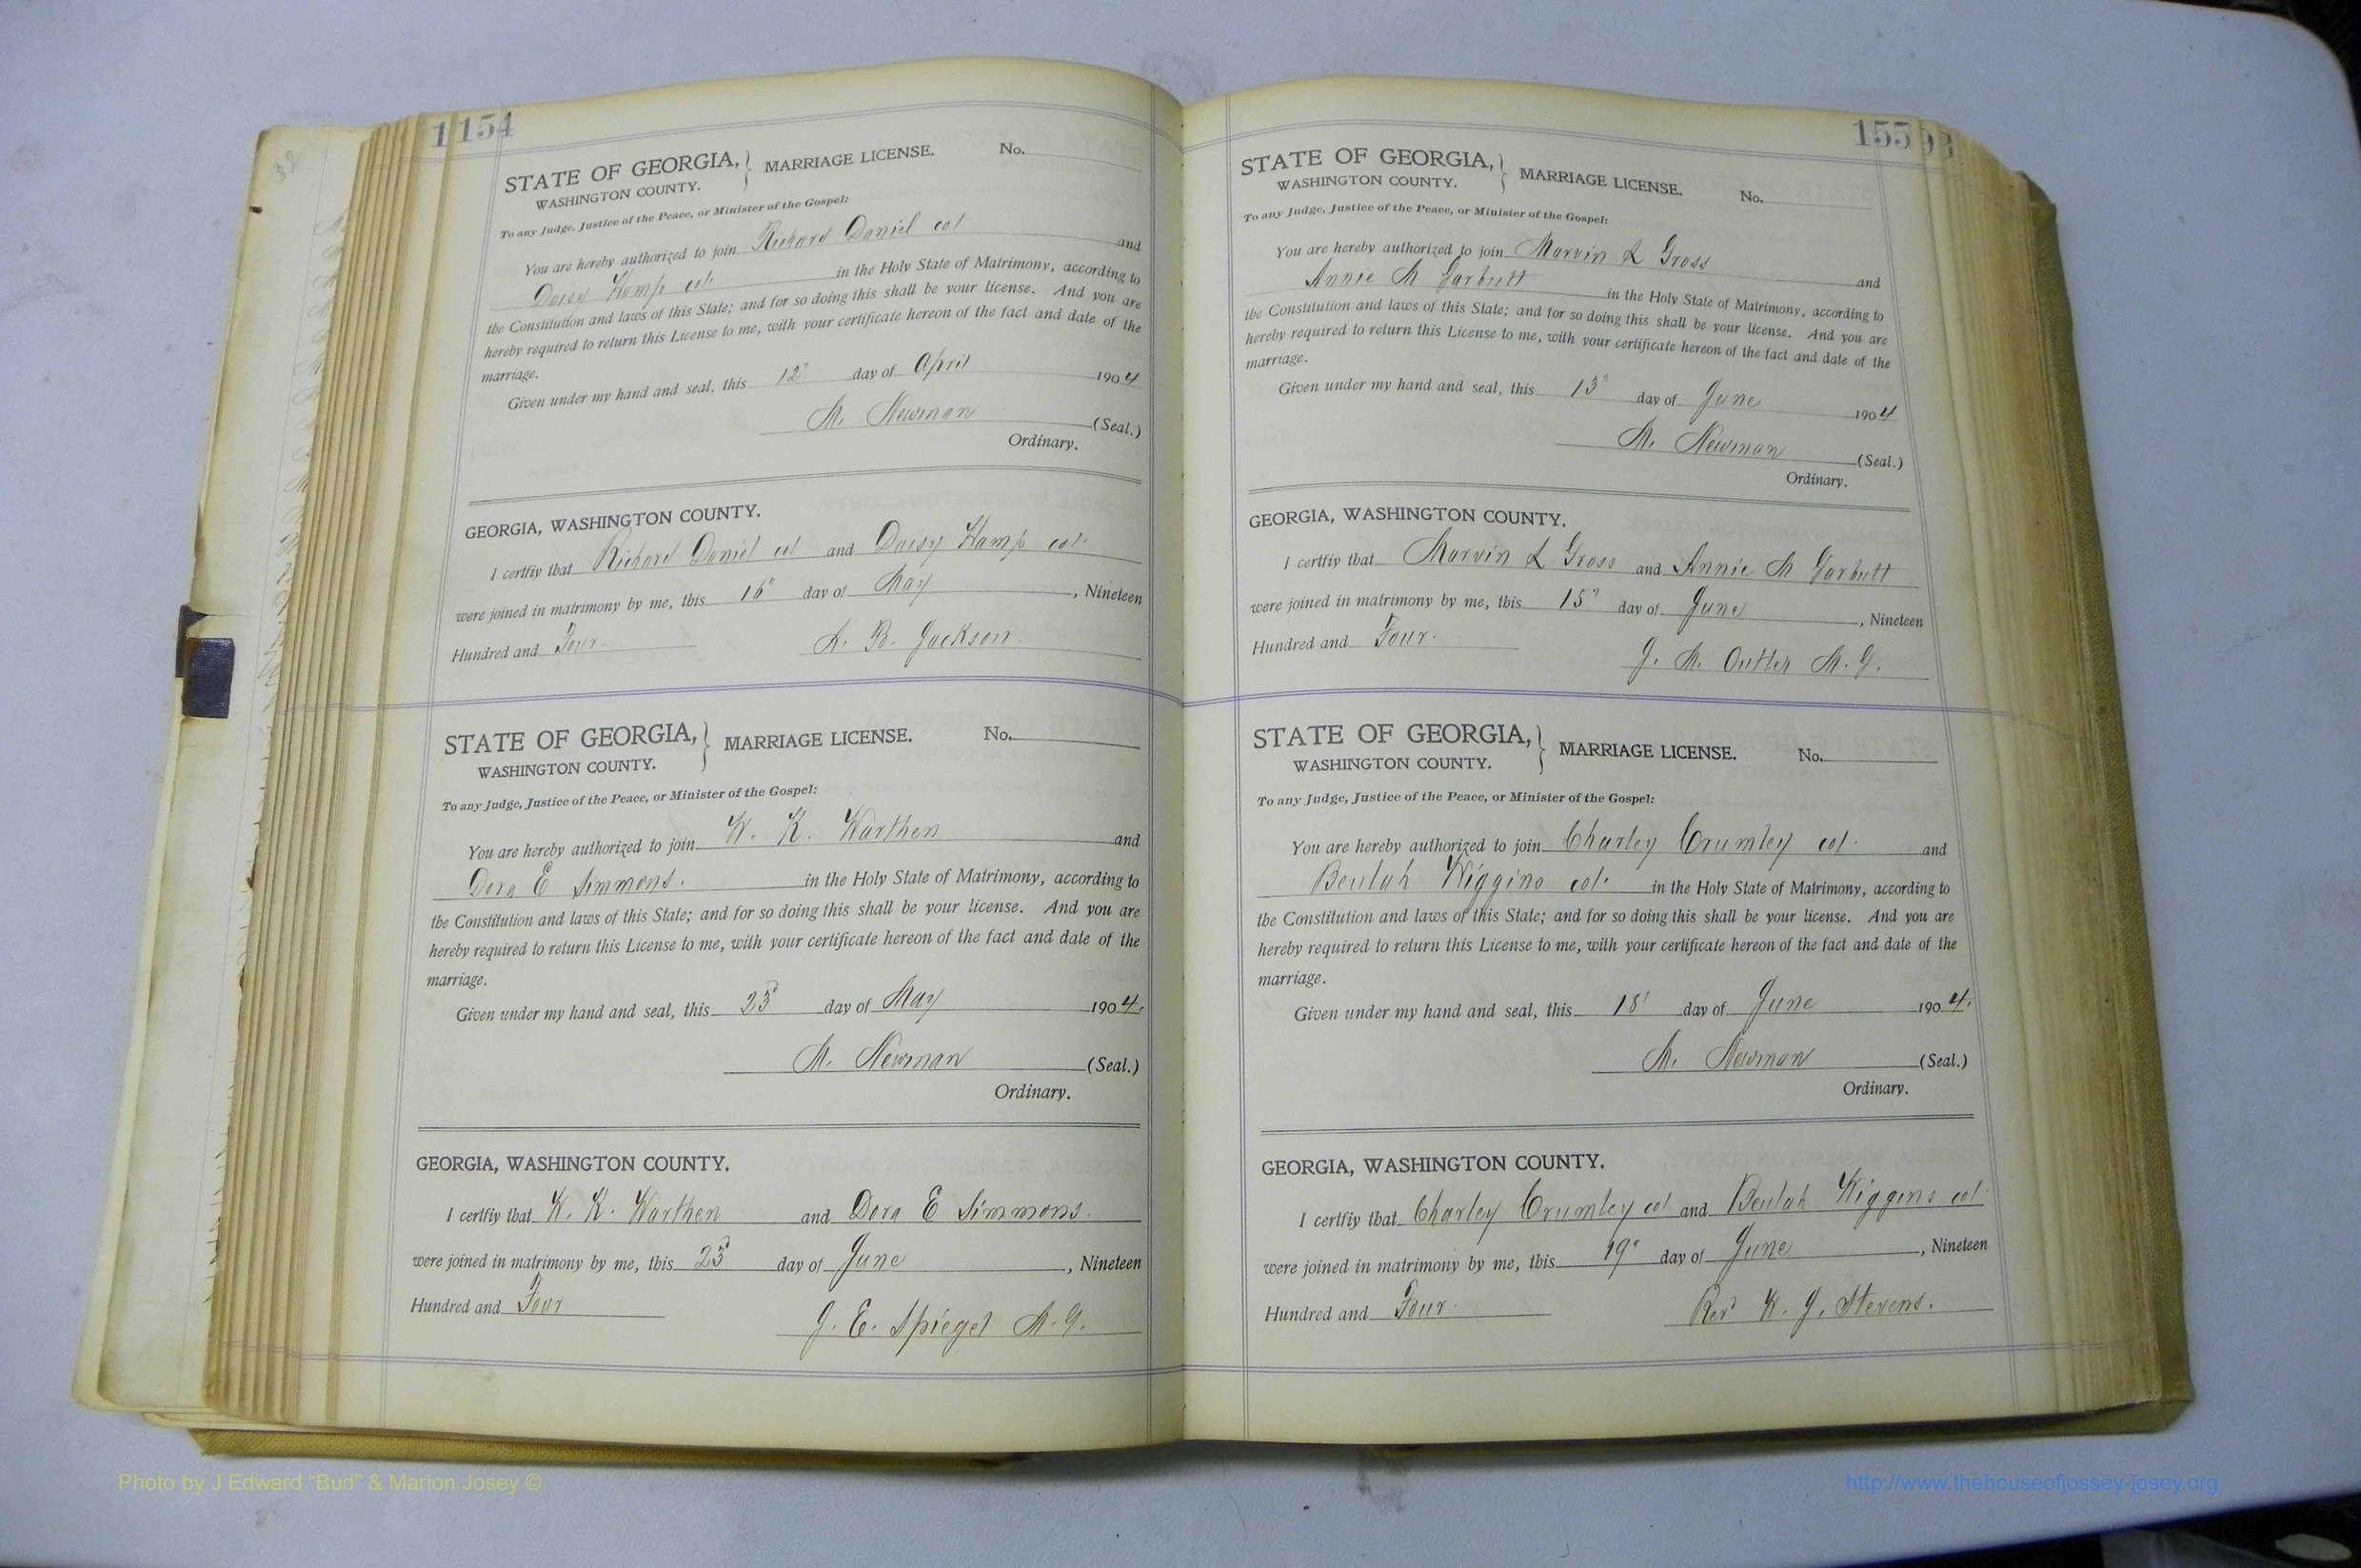 1 154
STATE OF GEORGIA, } MARRIAGE LICENSE. No.
WASHINGTON COUNTY.
To any Judge, Justice of the Peace, or Minister of the Gospel:
You are hereby authorized to join Richard Daniel col and
Daisy Hamp col. in the Holy State of Matrimony, according to
the Constitution and laws of this State; and for so doing this shall be your license. And you are
hereby required to return this License to me, with your certificate hereon of the fact and date of the
marriage.
Given under my hand and seal, this 12" day of April 1904
M. Newman (Seal.)
Ordinary.
GEORGIA, WASHINGTON COUNTY.
I certfiy that Richard Daniel col and Daisy Hamp col.
were joined in matrimony by me, this 16" day of May, Nineteen
Hundred and Four. B. Jackson.
STATE OF GEORGIA, } MARRIAGE LICENSE. No.
WASHINGTON COUNTY.
To any Judge, Justice of the Peace, or Minister of the Gospel:
You are hereby authorized to join W. K. Warthen and
Dora E Simmons. in the Holy State of Matrimony, according to
the Constitution and laws of this State; and for so doing this shall be your license. And you are
hereby required to return this License to me, with your certificate hereon of the fact and date of the
marriage.
Given under my hand and seal, this 23d day of May 1904.
M. Newman (Seal.)
Ordinary.
GEORGIA, WASHINGTON COUNTY.
I certfiy that W. K. Warthen and Dora E Simmons.
were joined in matrimony by me, this 23d day of June, Nineteen
Hundred and Four J. E. Spiegel M.G.
155 93
STATE OF GEORGIA, } MARRIAGE LICENSE. No.
WASHINGTON COUNTY.
To any Judge, Justice of the Peace, or Minister of the Gospel:
You are hereby authorized to join Marvin L Gross and
Annie M Garbutt in the Holy State of Matrimony, according to
the Constitution and laws of this State; and for so doing this shall be your license. And you are
hereby required to return this License to me, with your certificate hereon of the fact and date of the
marriage.
Given under my hand and seal, this 13" day of June 1904
M. Newman (Seal.)
Ordinary.
GEORGIA, WASHINGTON COUNTY.
I certfiy that Marvin L Gross and Annie M Garbutt
were joined in matrimony by me, this 15" day of June, Nineteen
Hundred and Four. J. M. Outler M.G.
STATE OF GEORGIA, } MARRIAGE LICENSE. No.
WASHINGTON COUNTY.
To any Judge, Justice of the Peace, or Minister of the Gospel:
You are hereby authorized to join Charley Crumley col. and
Beulah Wiggins col. in the Holy State of Matrimony, according to
the Constitution and laws of this State; and for so doing this shall be your license. And you are
hereby required to return this License to me, with your certificate hereon of the fact and date of the
marriage.
Given under my hand and seal, this 18" day of June 1904.
M. Newman (Seal.)
Ordinary.
GEORGIA, WASHINGTON COUNTY.
I certfiy that Charley Crumley col and Beulah Wiggins col.
were joined in matrimony by me, this 19" day of June, Nineteen
Hundred and Four. Revd W. J. Stevens.
Photo by J Edward "Bud" & Marion Josey ©
http://www.thehouseofjossey-josey.org